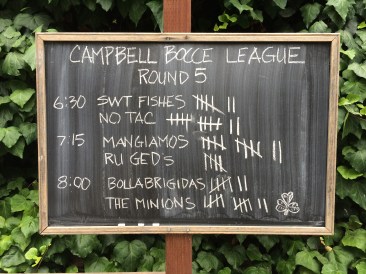 CAMPBELL BOCCE LEAGUE
ROUND 5
6:30 SWT FISHES
NO TAC
7:15 MANGIAMOS
RU GED'S
8:00 BOLLABRIGIDAS
THE MINIONS